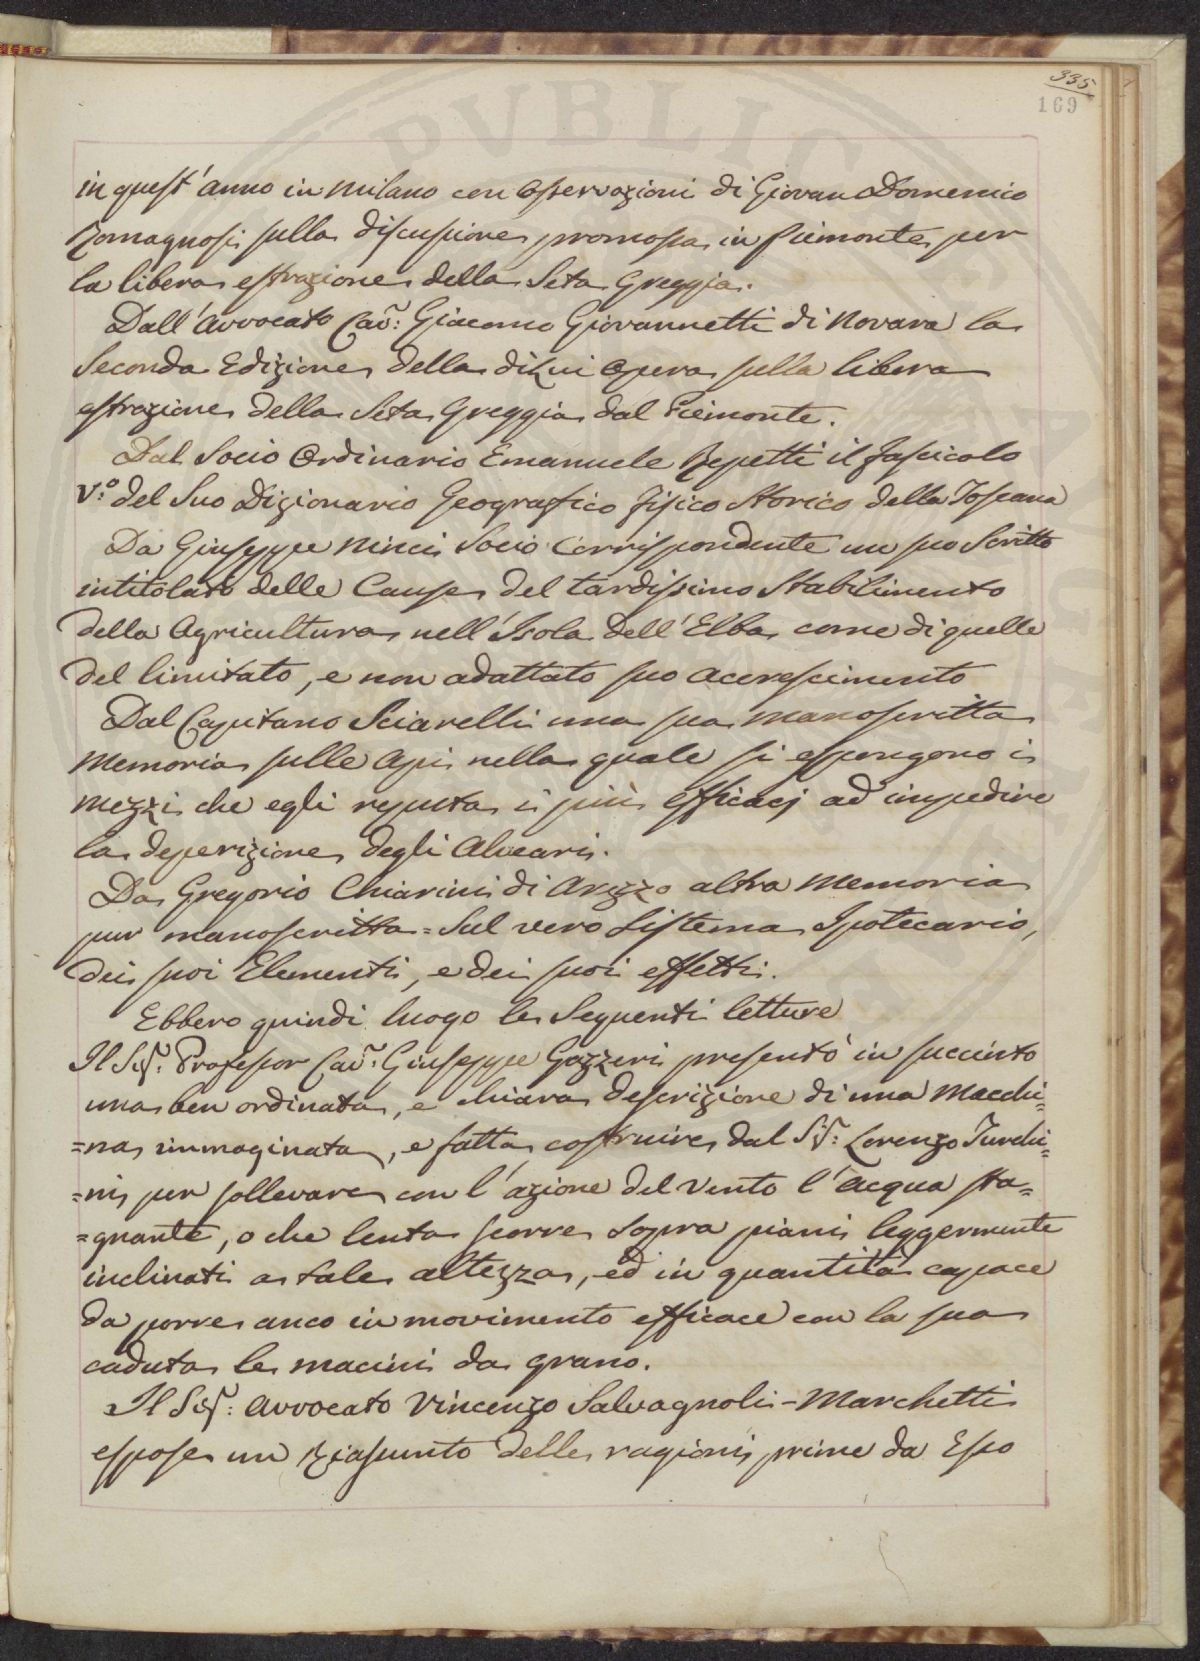 335
169
in quest'anno in Milano con Osservazioni di Giovan Domenico
Romagnosi sulla discussione promossa in Piemonte per
la libera estrazione della Seta Greggia.
Dall'Avvocato Cav: Giacomo Giovannetti di Novara la
Seconda Edizione della di Lui Opera sulla libera
estrazione della Seta Greggia dal Piemonte.
Dal Socio Ordinario Emanuele Repetti il fascicolo
V.º del Suo Dizionario Geografico fisico Storico della Toscana
Da Giuseppe Ninci Socio Corrispondente un suo Scritto
intitolato delle Cause del tardissimo Stabilimento
della Agricultura nell'Isola dell'Elba come di quelle
del limitato, e non adattato suo accrescimento
Dal Capitano Sciarelli una sua manoscritta
Memoria sulle Api nella quale si espongono i
mezzi che egli reputa i più efficacj ad impedire
la deperizione degli Alveari.
Da Gregorio Chiarini di Arezzo altra Memoria
pur manoscritta = Sul vero Sistema Ipotecario,
dei suoi Elementi, e dei suoi effetti.
Ebbero quindi luogo le Seguenti letture
Il Sig: Professor Cav: Giuseppe Gazzeri presentò in succinto
una ben ordinata, e chiara descrizione di una Macchi=
=na immaginata, e fatta costruire dal Sig: Lorenzo Turchi=
=ni per sollevare con l'azione del Vento l'Acqua sta=
=gnante, o che lenta scorre sopra piani leggermente
inclinati a tale altezza, ed in quantità capace
da porre anco in movimento efficace con la sua
caduta le macini da grano.
Il Sig: Avvocato Vincenzo Salvagnoli-Marchetti
espose un Riassunto delle ragioni prime da Espo